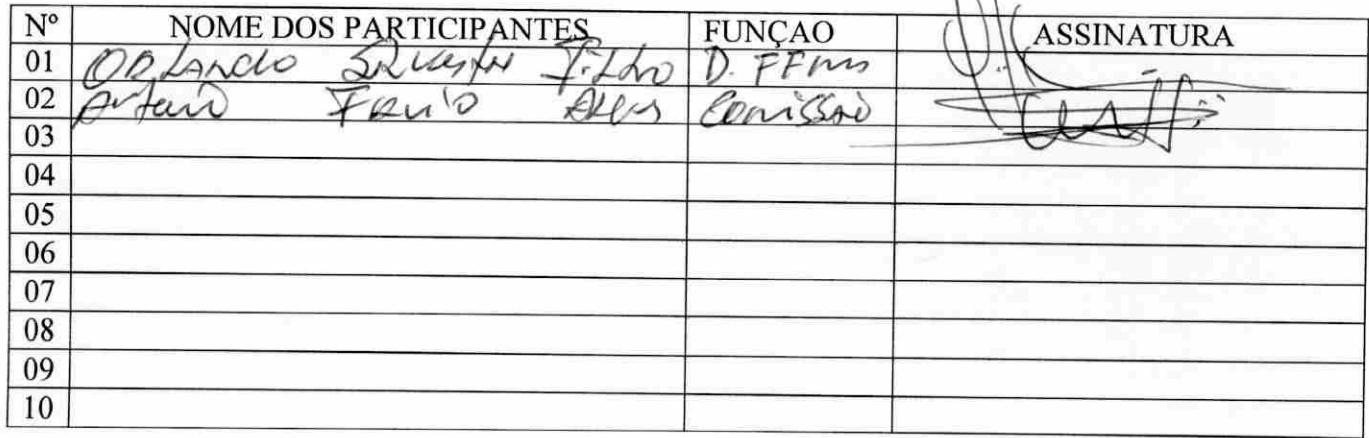 Nº NOME DOS PARTICIPANTES FUNÇAO ASSINATURA
01 ORLANDO Silvestre Filho D. FFms
02 Flavio Alves Comissão
03
04
05
06
07
08
09
10